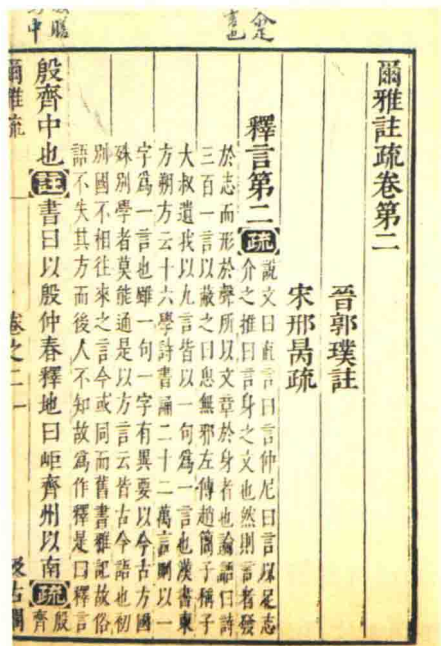 爾雅註疏卷第二
晉郭璞註
宋邢昺疏
釋言第二疏
說文曰直言曰言仲尼曰言以足志
介之推曰言身之文也然則言者發
於志而形於聲所以文章於身者也論語曰詩
三百一言以蔽之曰思無邪左傳趙簡子稱子
大叔遺我以九言皆以一句爲一言也漢書東
方朔方云十六學詩書誦二十二萬言則以一
字爲一言也雖一句一字有異要以今古方國
殊別學者莫能通是以方言云皆古今語也初
別國不相往來之言今或同而舊書雅記故俗
語不失其方而後人不知故爲作釋是曰釋言
殷齊中也註書曰以殷仲春釋地曰岠齊州以南疏殷
齊
爾雅疏 卷之二 一 汲古閣